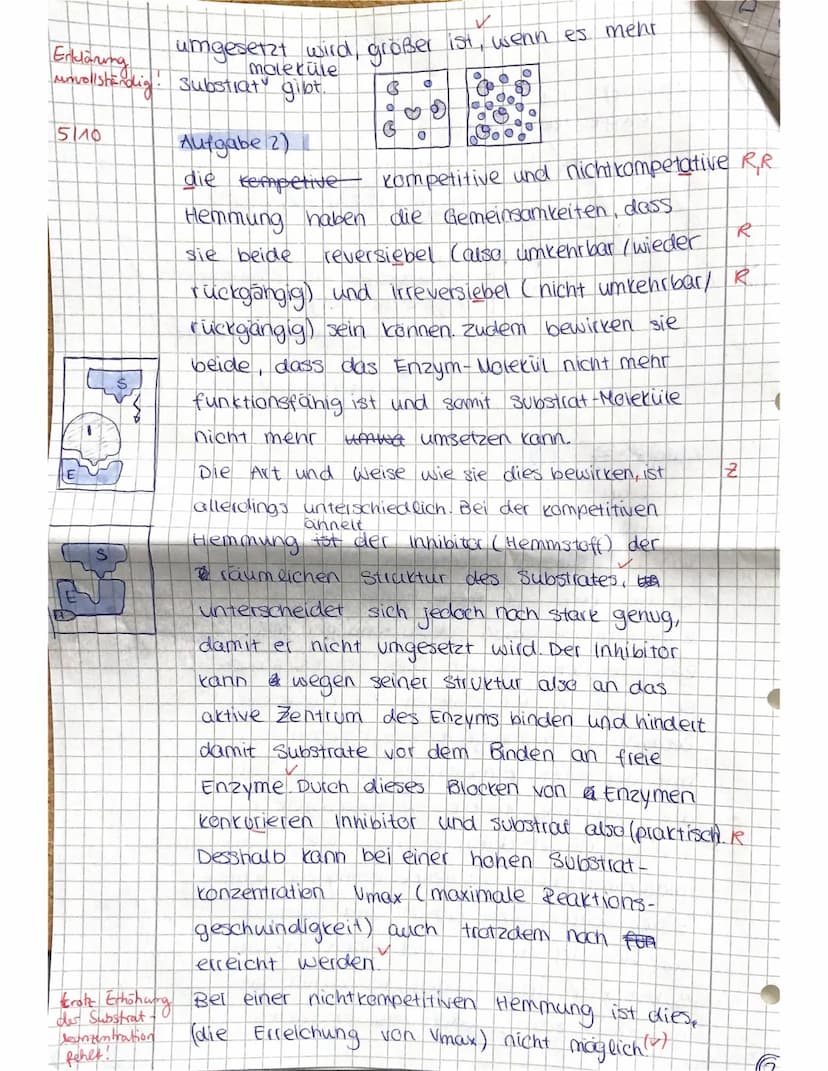 umgesetzt wird, größer ist, wenn es mehr
Erklärung
unvollständig!
moleküle
Substrat gibt.
5/10
Aufgabe 2)
die kempetive kompetitive und nichtkompetative R,R
Hemmung haben die Gemeinsamkeiten, dass
sie beide reversiebel (also umkehrbar/wieder R
rückgängig) und irreversiebel (nicht umkehrbar/ R
rückgängig) sein können. Zudem bewirken sie
beide, dass das Enzym-Molekül nicht mehr
funktionsfähig ist und somit Substrat-Moleküle
nicht mehr umsetzen kann.
S
I
E
Die Art und Weise wie sie dies bewirken, ist Z
allerdings unterschiedlich. Bei der kompetitiven
ähnelt
Hemmung ist der Inhibitor (Hemmstoff) der
räumlichen Struktur des Substrates,
unterscheidet sich jedoch noch stark genug,
S
E
damit er nicht umgesetzt wird. Der Inhibitor
kann wegen seiner Struktur also an das
aktive Zentrum des Enzyms binden und hindert
damit Substrate vor dem Binden an freie
Enzyme. Durch dieses Blocken von Enzymen
konkurieren Inhibitor und Substrat also (praktisch). R
Desshalb kann bei einer hohen Substrat-
konzentration Vmax (maximale Reaktions-
geschwindigkeit) auch trotzdem noch
erreicht werden.
trotz Erhöhung
der Substrat-
konzentration
fehlt!
Bei einer nichtkompetitiven Hemmung ist dies,
(die Erreichung von Vmax) nicht möglich (✓)